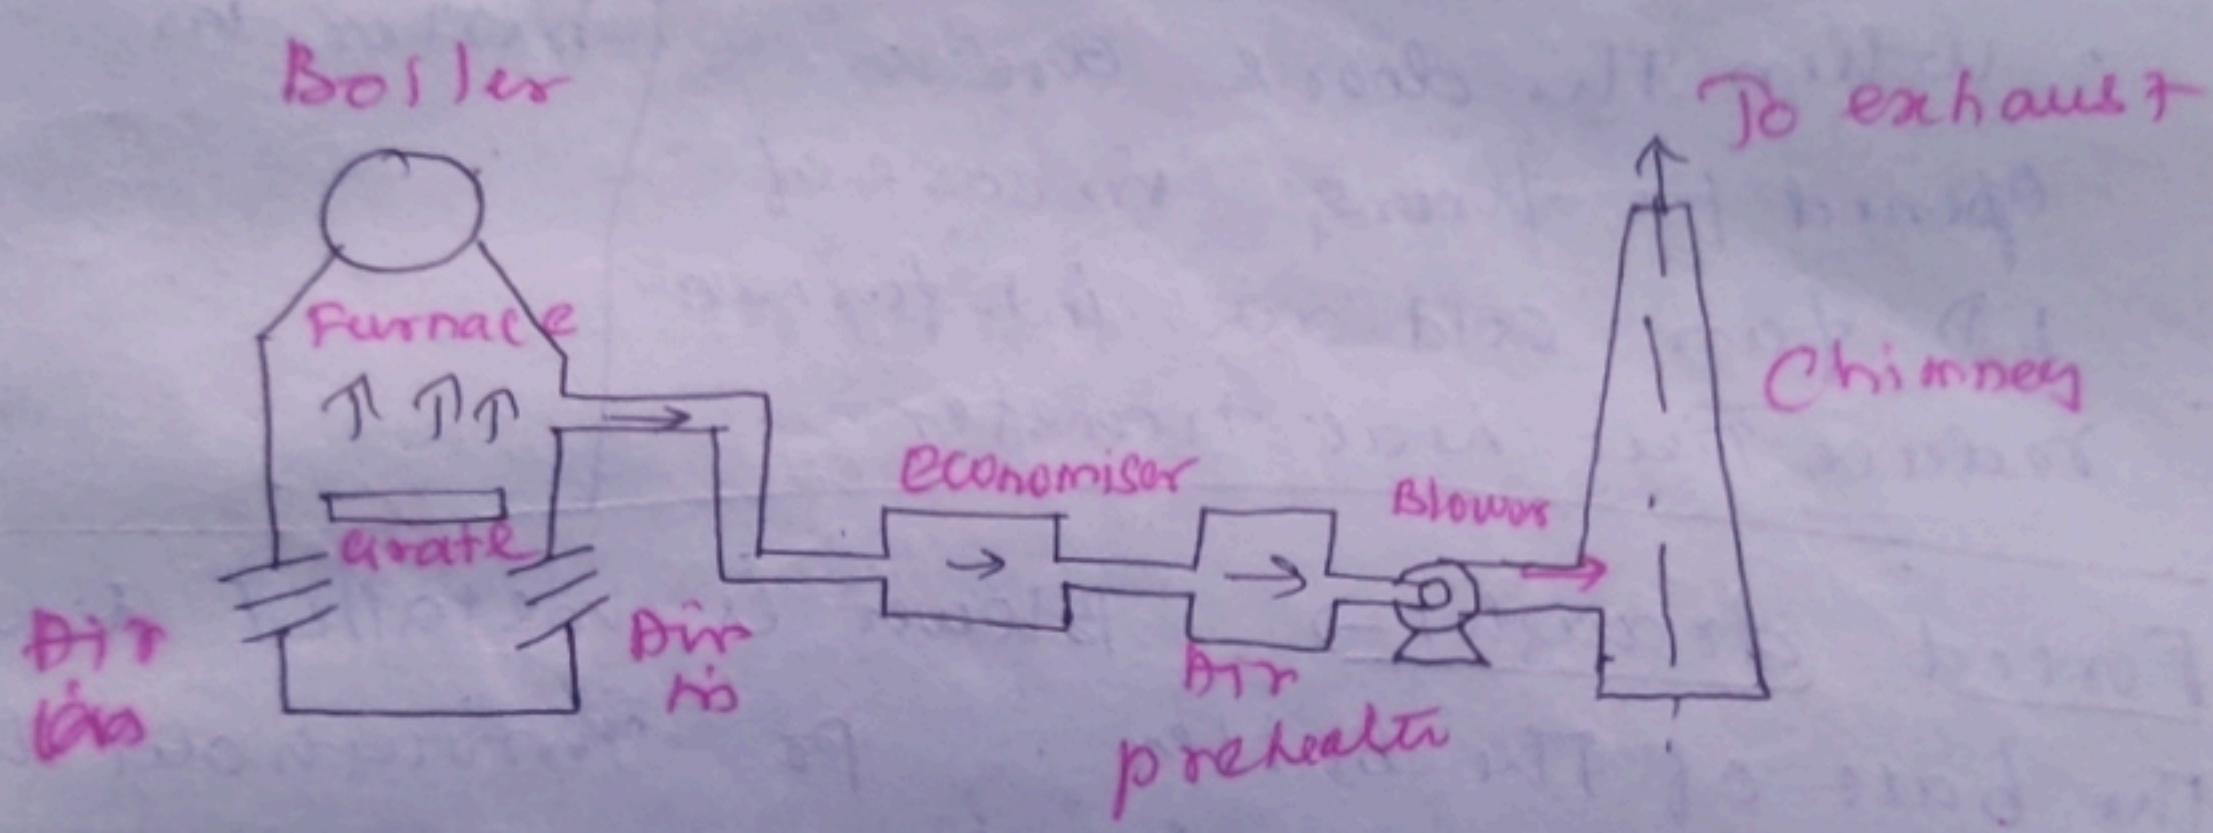 Boiler
To exhaust
Furnace
Chimney
economisor
Blower
Grate
Air
in
Air
in
Air
preheater